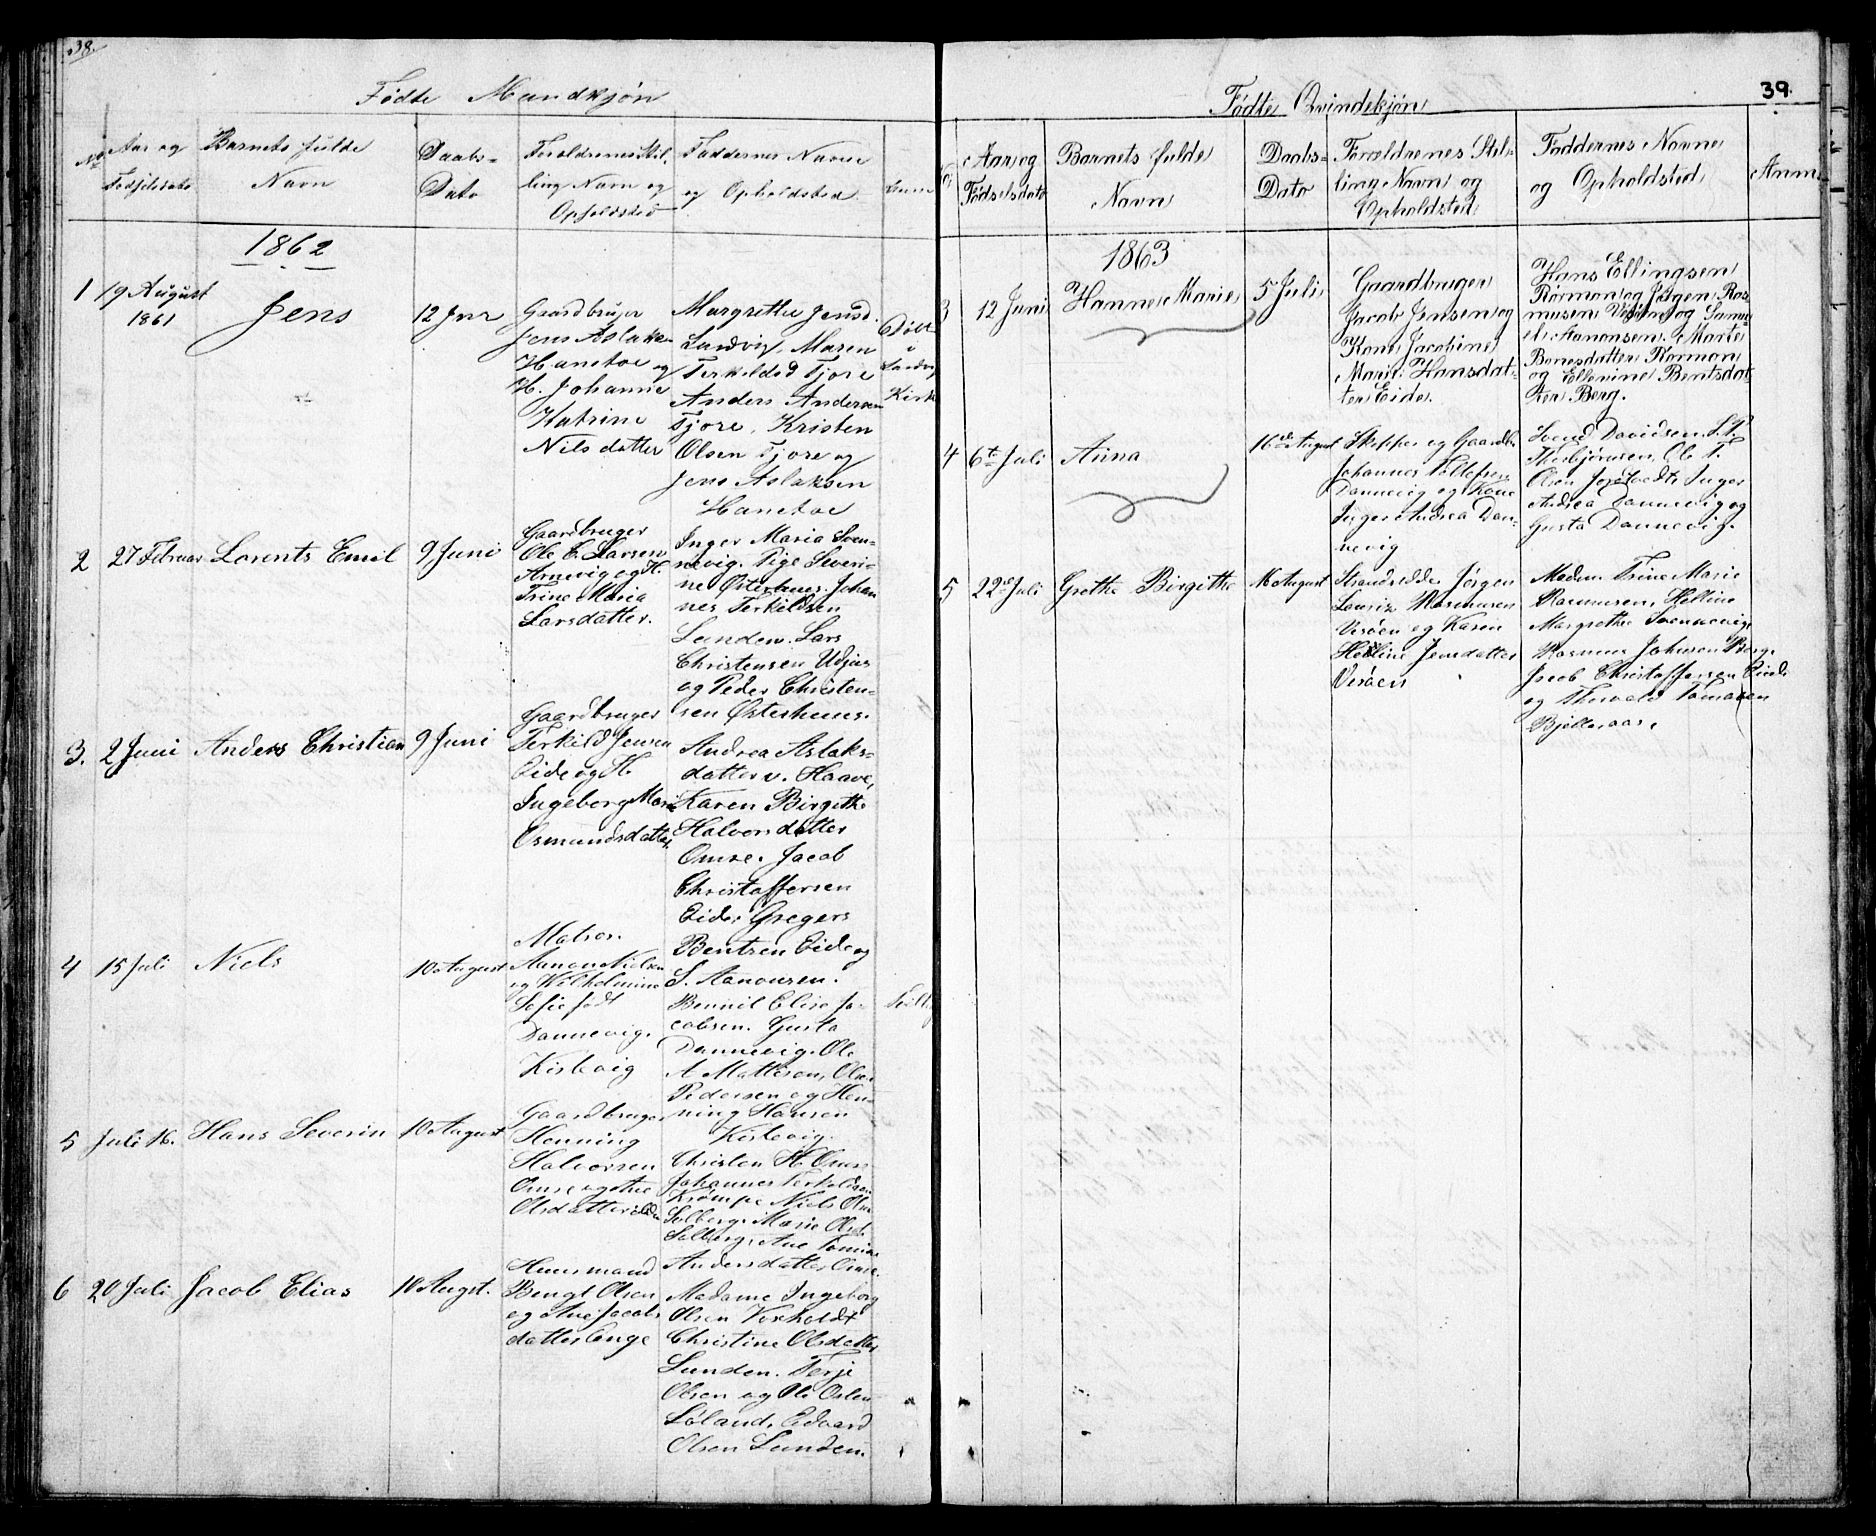 38.
Fødte Mandkjøn
No
Aar og
Fødselsdato
Barnets fulde
Navn
Daabs-
Dato
Forældrenes Stil-
ling Navn og
Opholdsted
Faddernes Navne
og Opholdsted
1862
1
19 August
1861
Jens
12 Jan
Gaardbruger
Jens Aslaksen
Hanetoe og
H. Johanne
Katrine
Nilsdatter
Margrethe Jensd.
Landvig, Maren
Terkildsd Fjore
Anders Andersen
Fjore, Kristen
Olsen Fjore og
Jens Aslaksen
Hanetoe
Døbt
i
Landvig
Kirk
2
27 Februar
Lorents Emil
9 Juni
Gaardbruger
Ole E. Larsen
Arnevig og H.
Trine Maria
Larsdatter.
Inger Maria Sven-
nevig. Pige Severi-
ne Østerhus. Johan
nes Terkildsen
Lunden. Lars
Christensen Udjus
og Peder Christen-
sen Østerhuus.
3.
2 Juni
Anders Christian
9 Juni
Gaardbruger
Terkild Jensen
Eide og H.
Ingeborg Marie
Osmundsdatter
Andrea Aslaks-
datter v. Haave,
Karen Birgithe
Halvorsdatter
Omre. Jacob
Christoffersen
Eide, Gregers
Bentzen Eide og
S. Aanonsen.
4
15 Juli
Niels
10 August
Matros
Aanon Nielsen
og Wilhelmine
Sofie født
Dannevig.
Kirkevig
Bennit Elise Ja-
cobsen. Gusta
Dannevig. Ole
A Mattisen, Olav
Pedersen og Hen-
ning Hansen
Kirkevig.
5
Juli 16.
Hans Severin
10 August
Gaardbruger
Henning
Halvorsen
Omre og Ane
Olsdatter
Christen H. Omre
Johannes Terkeldsen
Krømpe Niels Olsen
Salberg. Marie Olsd.
Salberg, Ane Tomine
Andersdatter Omre.
6
20 Juli
Jacob Elias
10 Augst.
Huusmand
Bengt Olsen
og Ane Jacobs
datter Enge
Madame Ingeborg
Olsen Voxholdt
Christine Olsdatter
Lunden. Terje
Olsen og Ole Oslen
Løland, Edvard
Olsen Lunden.
39.
Fødte Qvindekjøn
No
Aar og
Fødselsdato
Barnets fulde
Navn
Daabs-
Dato
Forældrenes Stil-
ling Navn og
Opholdsted
Faddernes Navne
og Opholdsted
Anm
1863
3
12 Juni
Hanne Marie
5 Juli
Gaardbruger
Jacob Jensen og
Kone Jacobine
Marie Hansdat-
ter Eide.
Hans Ellingsen
Rørmon og Jørgen Ras
musen Vesøen og Samu-
el Aanonsen. Marte
Bonesdatter Rørmon
og Ellevine Bentsdat
ter Berg.
4
6te Juli
Anna
16de August
Skipper og Gaardbr.
Johannes Tellefsen
Dannevig og Kone
Inger Andrea Dan-
nevig
Svend Davidsen, S. T.
Thorbjørnsen, Ole T.
Olsen Jortvedt, Inger
Andrea Dannevig og
Gusta Dannevig.
5
22de Juli
Grethe Birgitte
16 August
Strandsidder Jørgen
Lauriz Rasmusen
Vesøen og Karen
Helline Jensdatter
Vesøen
Madm. Trine Marie
Rasmusen, Helline
Margrethe Svennevig,
Rasmus Johnsen Berge
Jacob Christoffersen Eide
og Thorvald Tomasen
Bjelleraas.